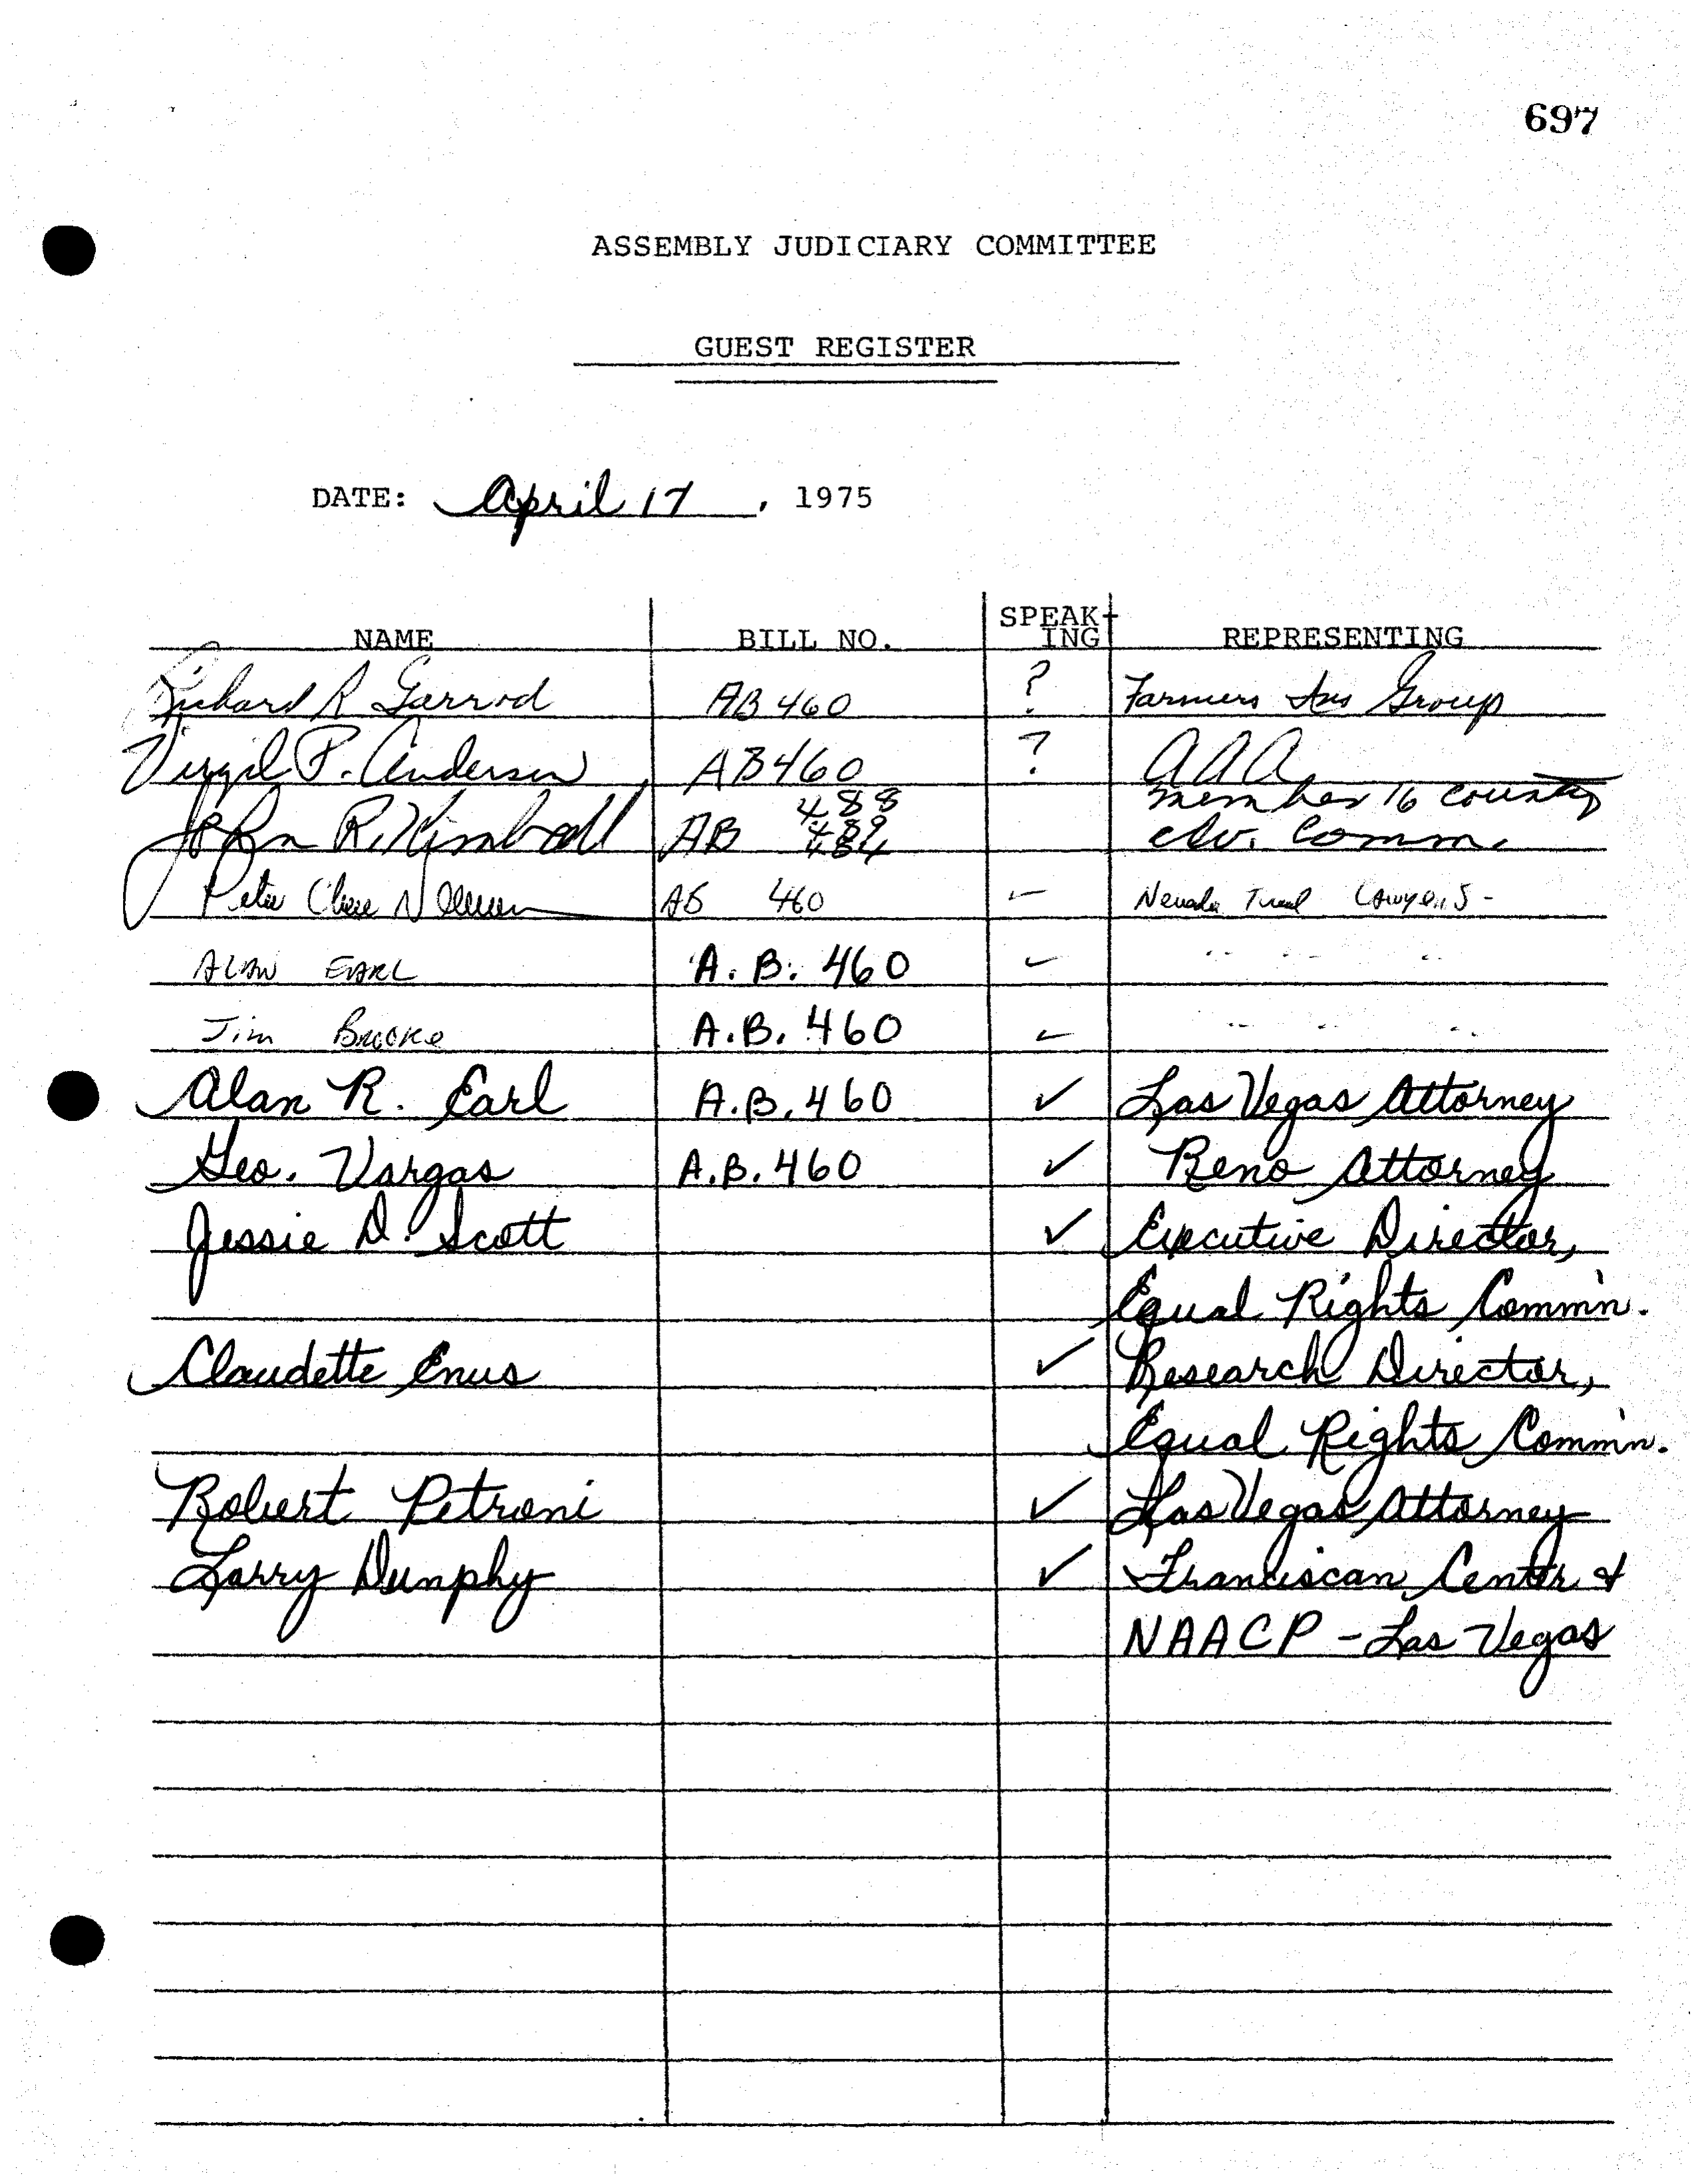 697
ASSEMBLY JUDICIARY COMMITTEE
GUEST REGISTER
DATE: April 17, 1975
NAME BILL NO. SPEAK-ING REPRESENTING
Richard R Garrod AB 460 ? Farmers Ins Group
Virgil P. Anderson AB460 ? AAA
John R. Kimball AB 488 489 484 member 16 county
Adv. Comm.
Peter Chase Neumann AB 460 ✓ Nevada Trial Lawyers -
ALAN EARL A.B. 460 ✓ " " "
Jim Brooke A.B. 460 ✓ " " "
Alan R. Earl A.B. 460 ✓ Las Vegas Attorney
Geo. Vargas A.B. 460 ✓ Reno Attorney
Jessie D. Scott ✓ Executive Director,
Equal Rights Comm'n.
Claudette Enus ✓ Research Director,
Equal Rights Comm'n.
Robert Petroni ✓ Las Vegas Attorney
Larry Dunphy ✓ Franciscan Center &
NAACP - Las Vegas